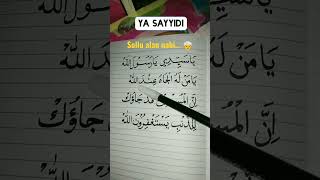 YA SAYYIDI
Sollu alan nabi...
يَا سَيِّدِيْ يَا رَسُوْلَ اللّٰهْ
يَا مَنْ لَهُ الْجَاهْ عِنْدَ اللّٰهْ
اِنَّ الْمُسِيْئِيْنَ قَدْ جَاؤُكْ
يَسْتَغْفِرُوْنَ اللّٰهْ